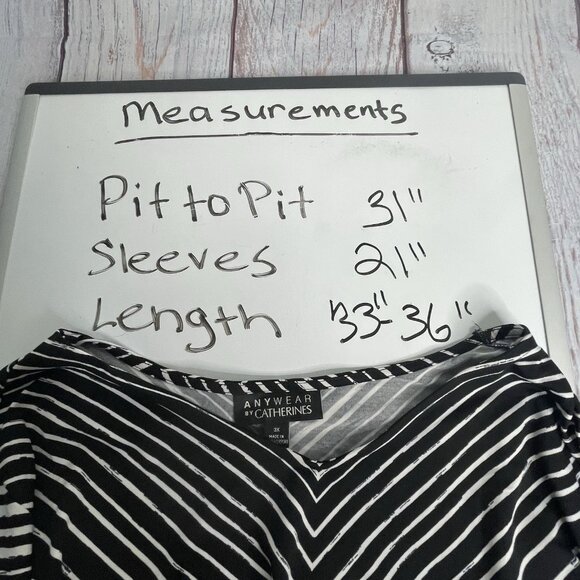 Measurements
Pit to Pit 31"
Sleeves 21"
Length 33"-36"
ANYWEAR
BY CATHERINES
3X
MADE IN